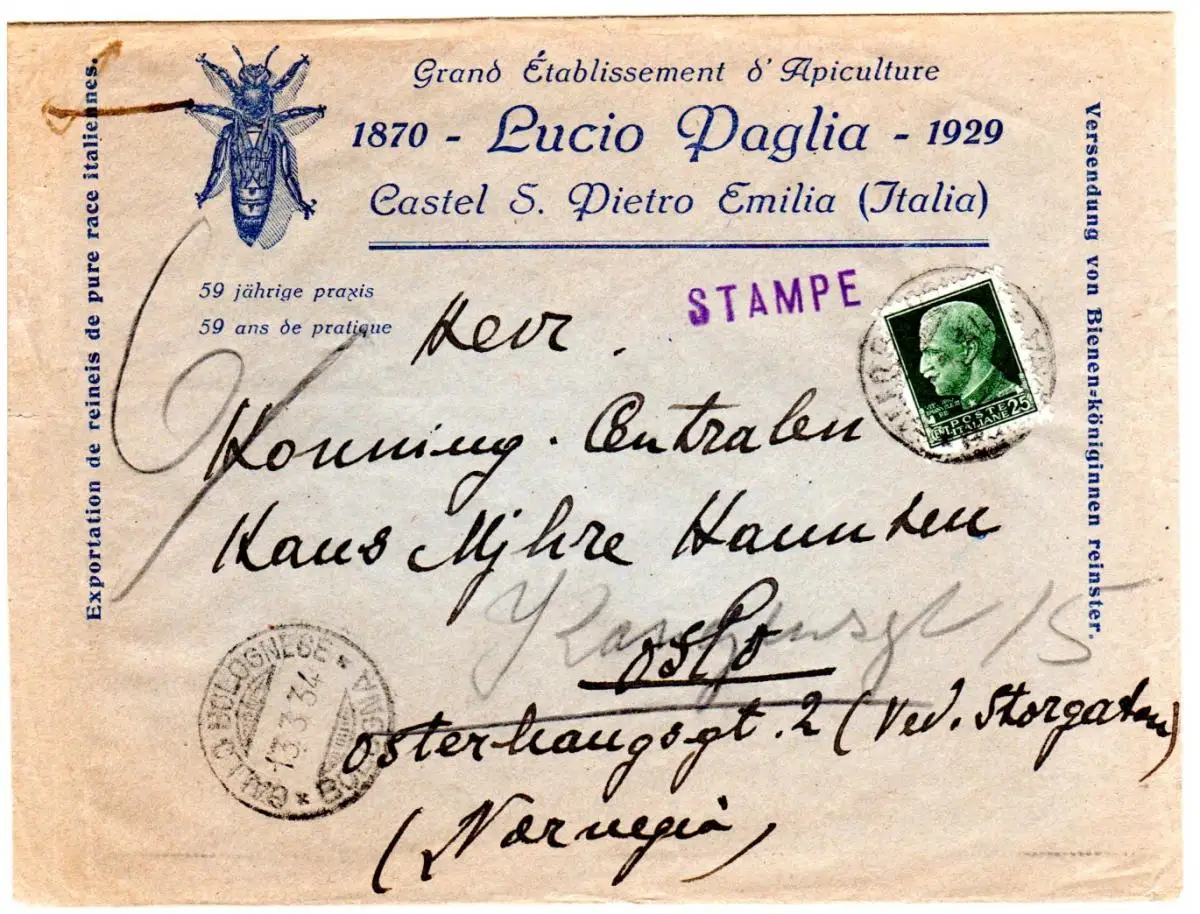 Grand Établissement d' Apiculture
1870 - Lucio Paglia - 1929
Castel S. Pietro Emilia (Italia)
Exportation de reineis de pure race italiennes.
Versendung von Bienen-königinnen reinster.
59 jährige praxis
59 ans de pratique
STAMPE
POSTE
ITALIANE
25
Herr.
Honning. Centralen
Hans Mjhre Haunsen
Oslo
15
Osterhaugsgt. 2 (Ved. Storgaten)
(Norvegia)
GALLO BOLOGNESE * BOLOGNA *
13.3.34